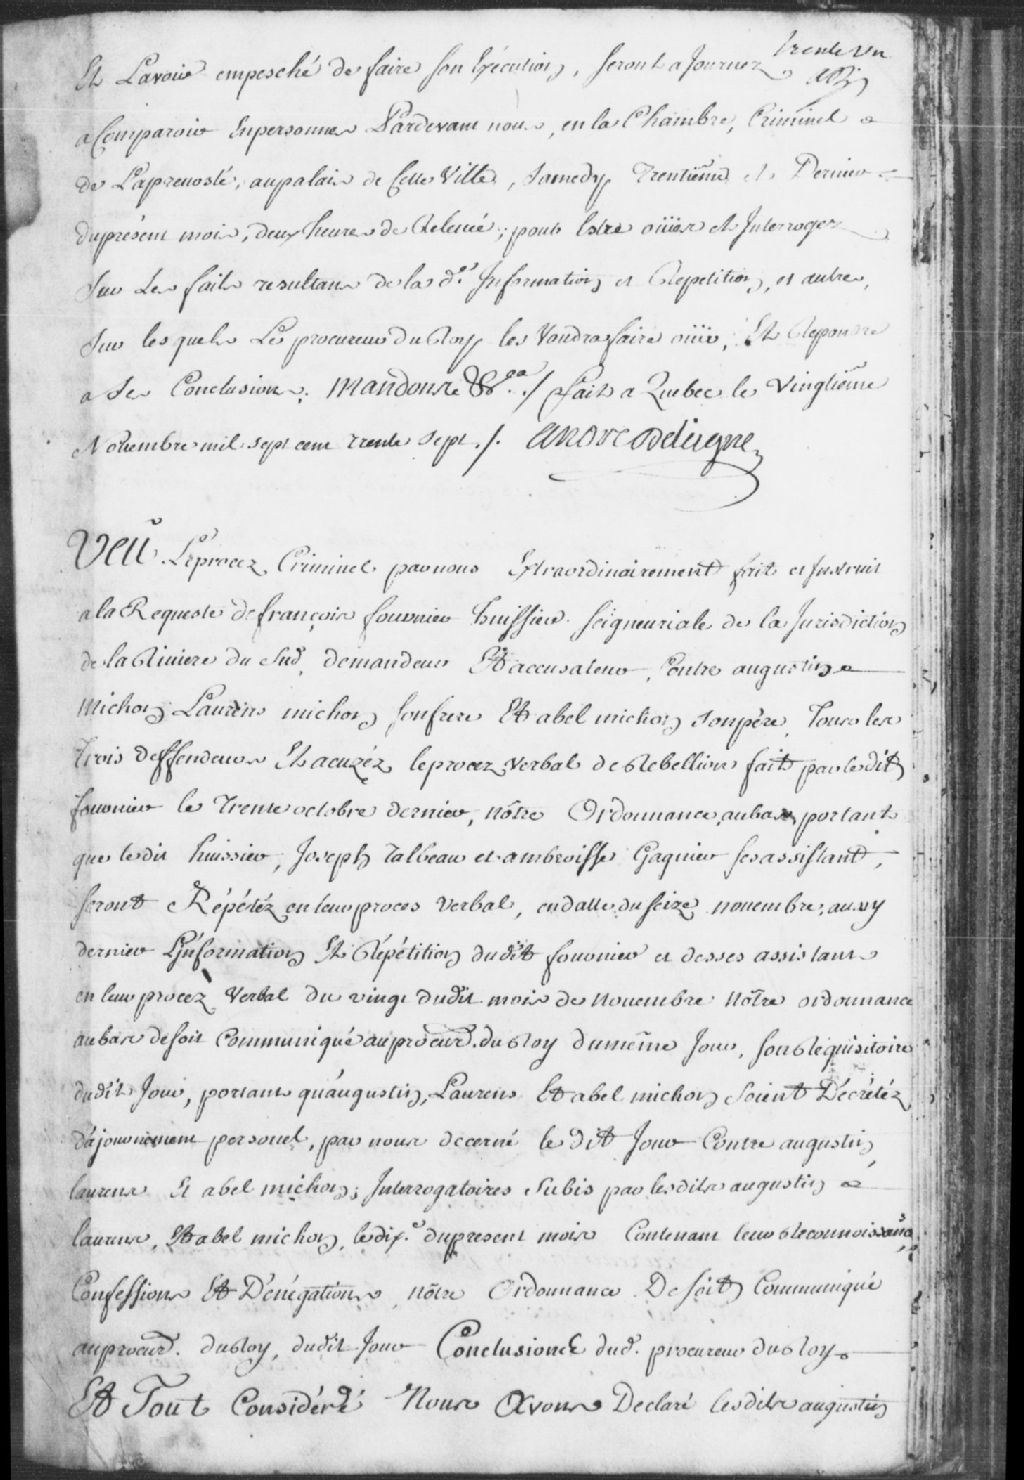 trente un
Et Lavoir empesché de faire son Execution, seront ajournez
a Comparoir En personnes Pardevant nous, en la Chambre, Criminel
de Laprevosté, au palais de Cette Ville, Samedy Trentiéme et Dernier
du présent mois, deux heures de Relevée, pour Estre oüis et Interrogez
Sur Les faits resultans de la d.e Information et Repetition, et autres,
Sur lesquels Le procureur du Roy les Voudra faire oüir, Et Repondre
a Ses Conclusions. Mandons &.a ./ fait a Quebec le Vingtiéme
Novembre mil sept cent Trente Sept ./. André Deleigne
Veu Le procez Criminel par nous Extraordinairement fait et Instruit
a la Requeste de françois fournier huissier Seigneuriale de la Jurisdiction
de la Riviere du Sud, demandeur Et accusateur, Contre augustin
Michon, Laurens michon, son frere Et abel michon son père, Tous les
Trois deffendeurs Et acuzéz, le procez Verbal de Rebellion fait par ledit
fournier le Trente octobre dernier, nôtre Ordonnance au bas, portant
que ledit huissier, Joseph Talbeau et ambroisse Gagnier ses assistant,
seront Répétéz en leur proces Verbal, en datte du seize novembre, aussy
dernier L'Information Et Répétition dudit fournier et de ses assistans
en leur procez Verbal du vingt dudit mois de Novembre Nôtre ordonnance
au bas de soit Communiqué au proceur.d du Roy du même Jour, son Réquisitoire
dudit Jour, portant qu'augustin, Laurens Et abel michon Soient Décrétéz
d'ajournement personel, par nous decerné le dit Jour Contre augustin,
laurens Et abel michon; Interrogatoires Subis par lesdits augustin
laurens, Et abel michon, le dix.e du present mois Contenant leurs Reconnoissance,
Confessions Et Dénégations, nôtre Ordonnance De soit Communiqué
au procur.d du Roy, dudit Jour Conclusions dud. procureur du Roy
Et Tout Considéré Nous Avons Declaré lesdits augustin